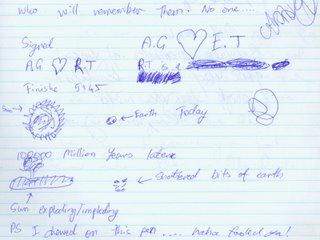 Who will remember them? No one....
Signed
A.G ♡ R.T
A.G ♡ E.T
R.T is a
Finishe 5:45
Sun →
← Earth Today
100,000 Million Years later
← Shattered bits of earth
Sun exploding/imploding
PS I chewed on this pen .... haha fooled you!